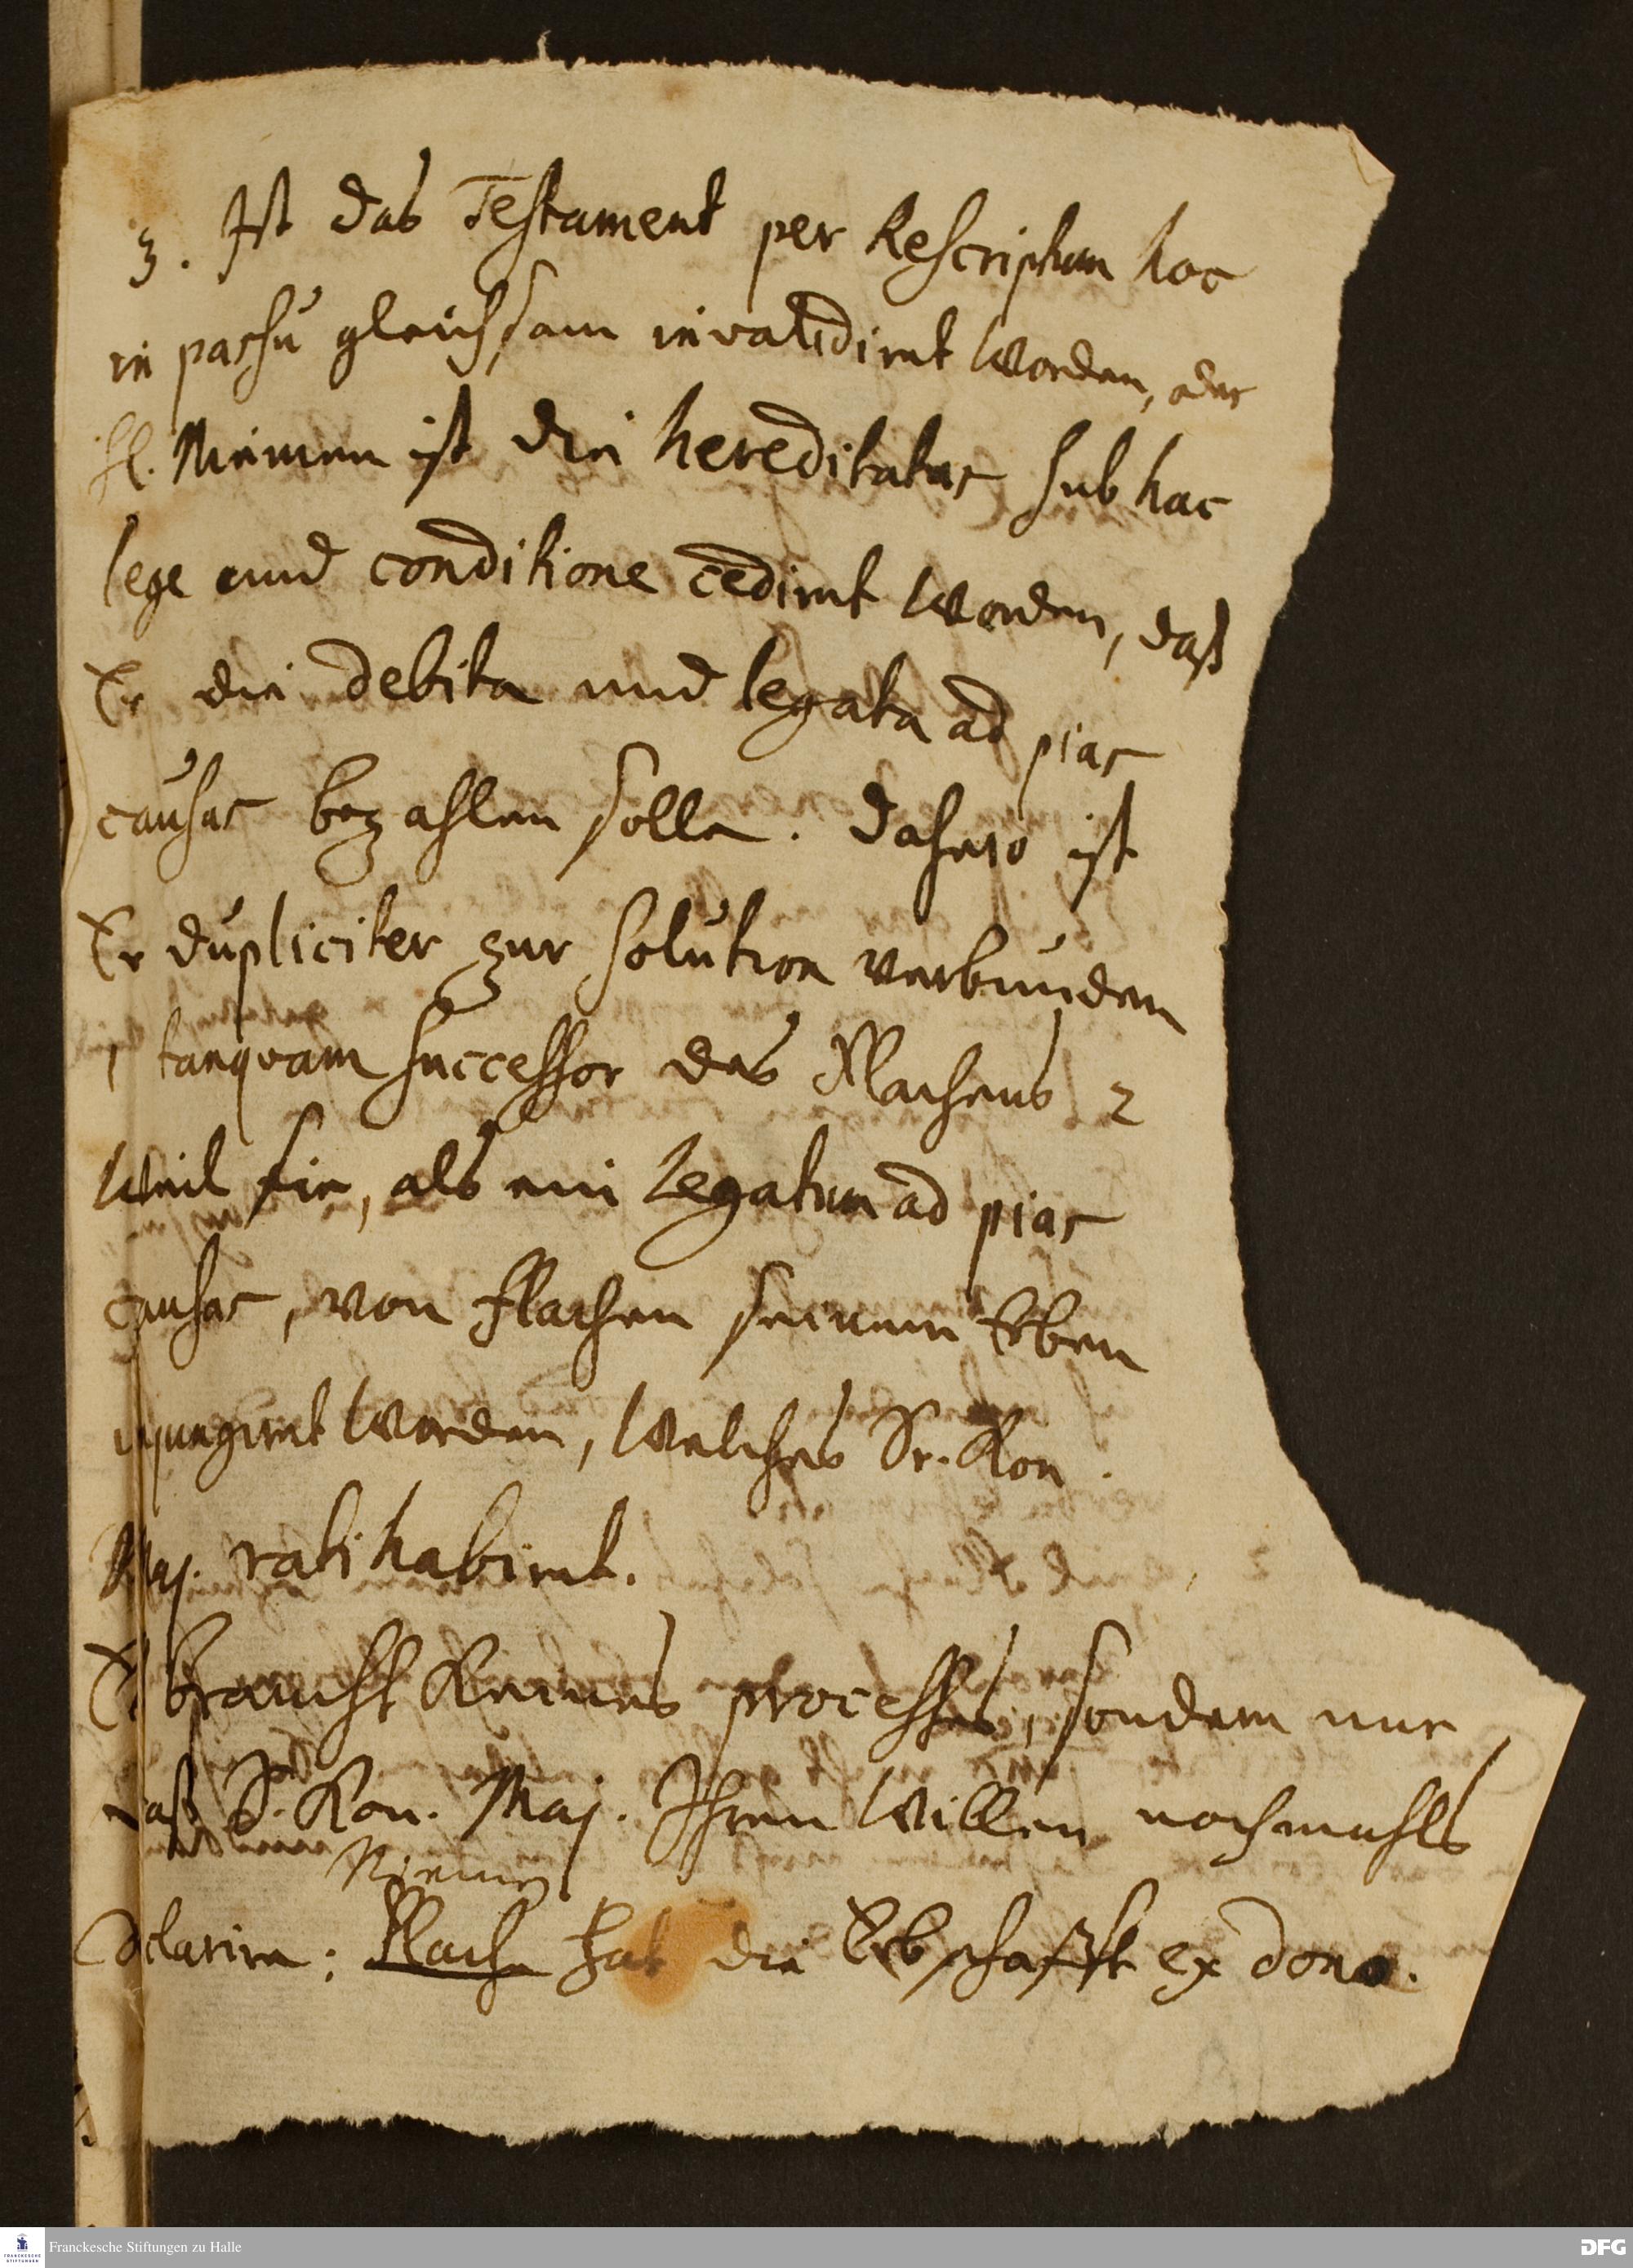 3. Ist das Testament per Rescriptum hoc
in passu gleichsam invalidirt worden, oder
H. Niemen ist die hereditatas sub hac
lege und conditione cedirt worden, daß
Er die debita und legata ad pias
causas bezahlen solle. dahero ist
Er dupliciter zur solution verbunden
1 tanqvam successor des Flachens 2
weil sie, als ein Legatum ad pias
causas, von Flachen seinem Erben
injungirt worden, welches Sr. Kön.
Maj. ratihabirt.
Es braucht keines processes, sondern nur
daß S. Kön. Maj. Ihren willen nochmahls
Niemen
declarire: Flache hat die Erbschafft ex dono.
Franckesche Stiftungen zu Halle
DFG